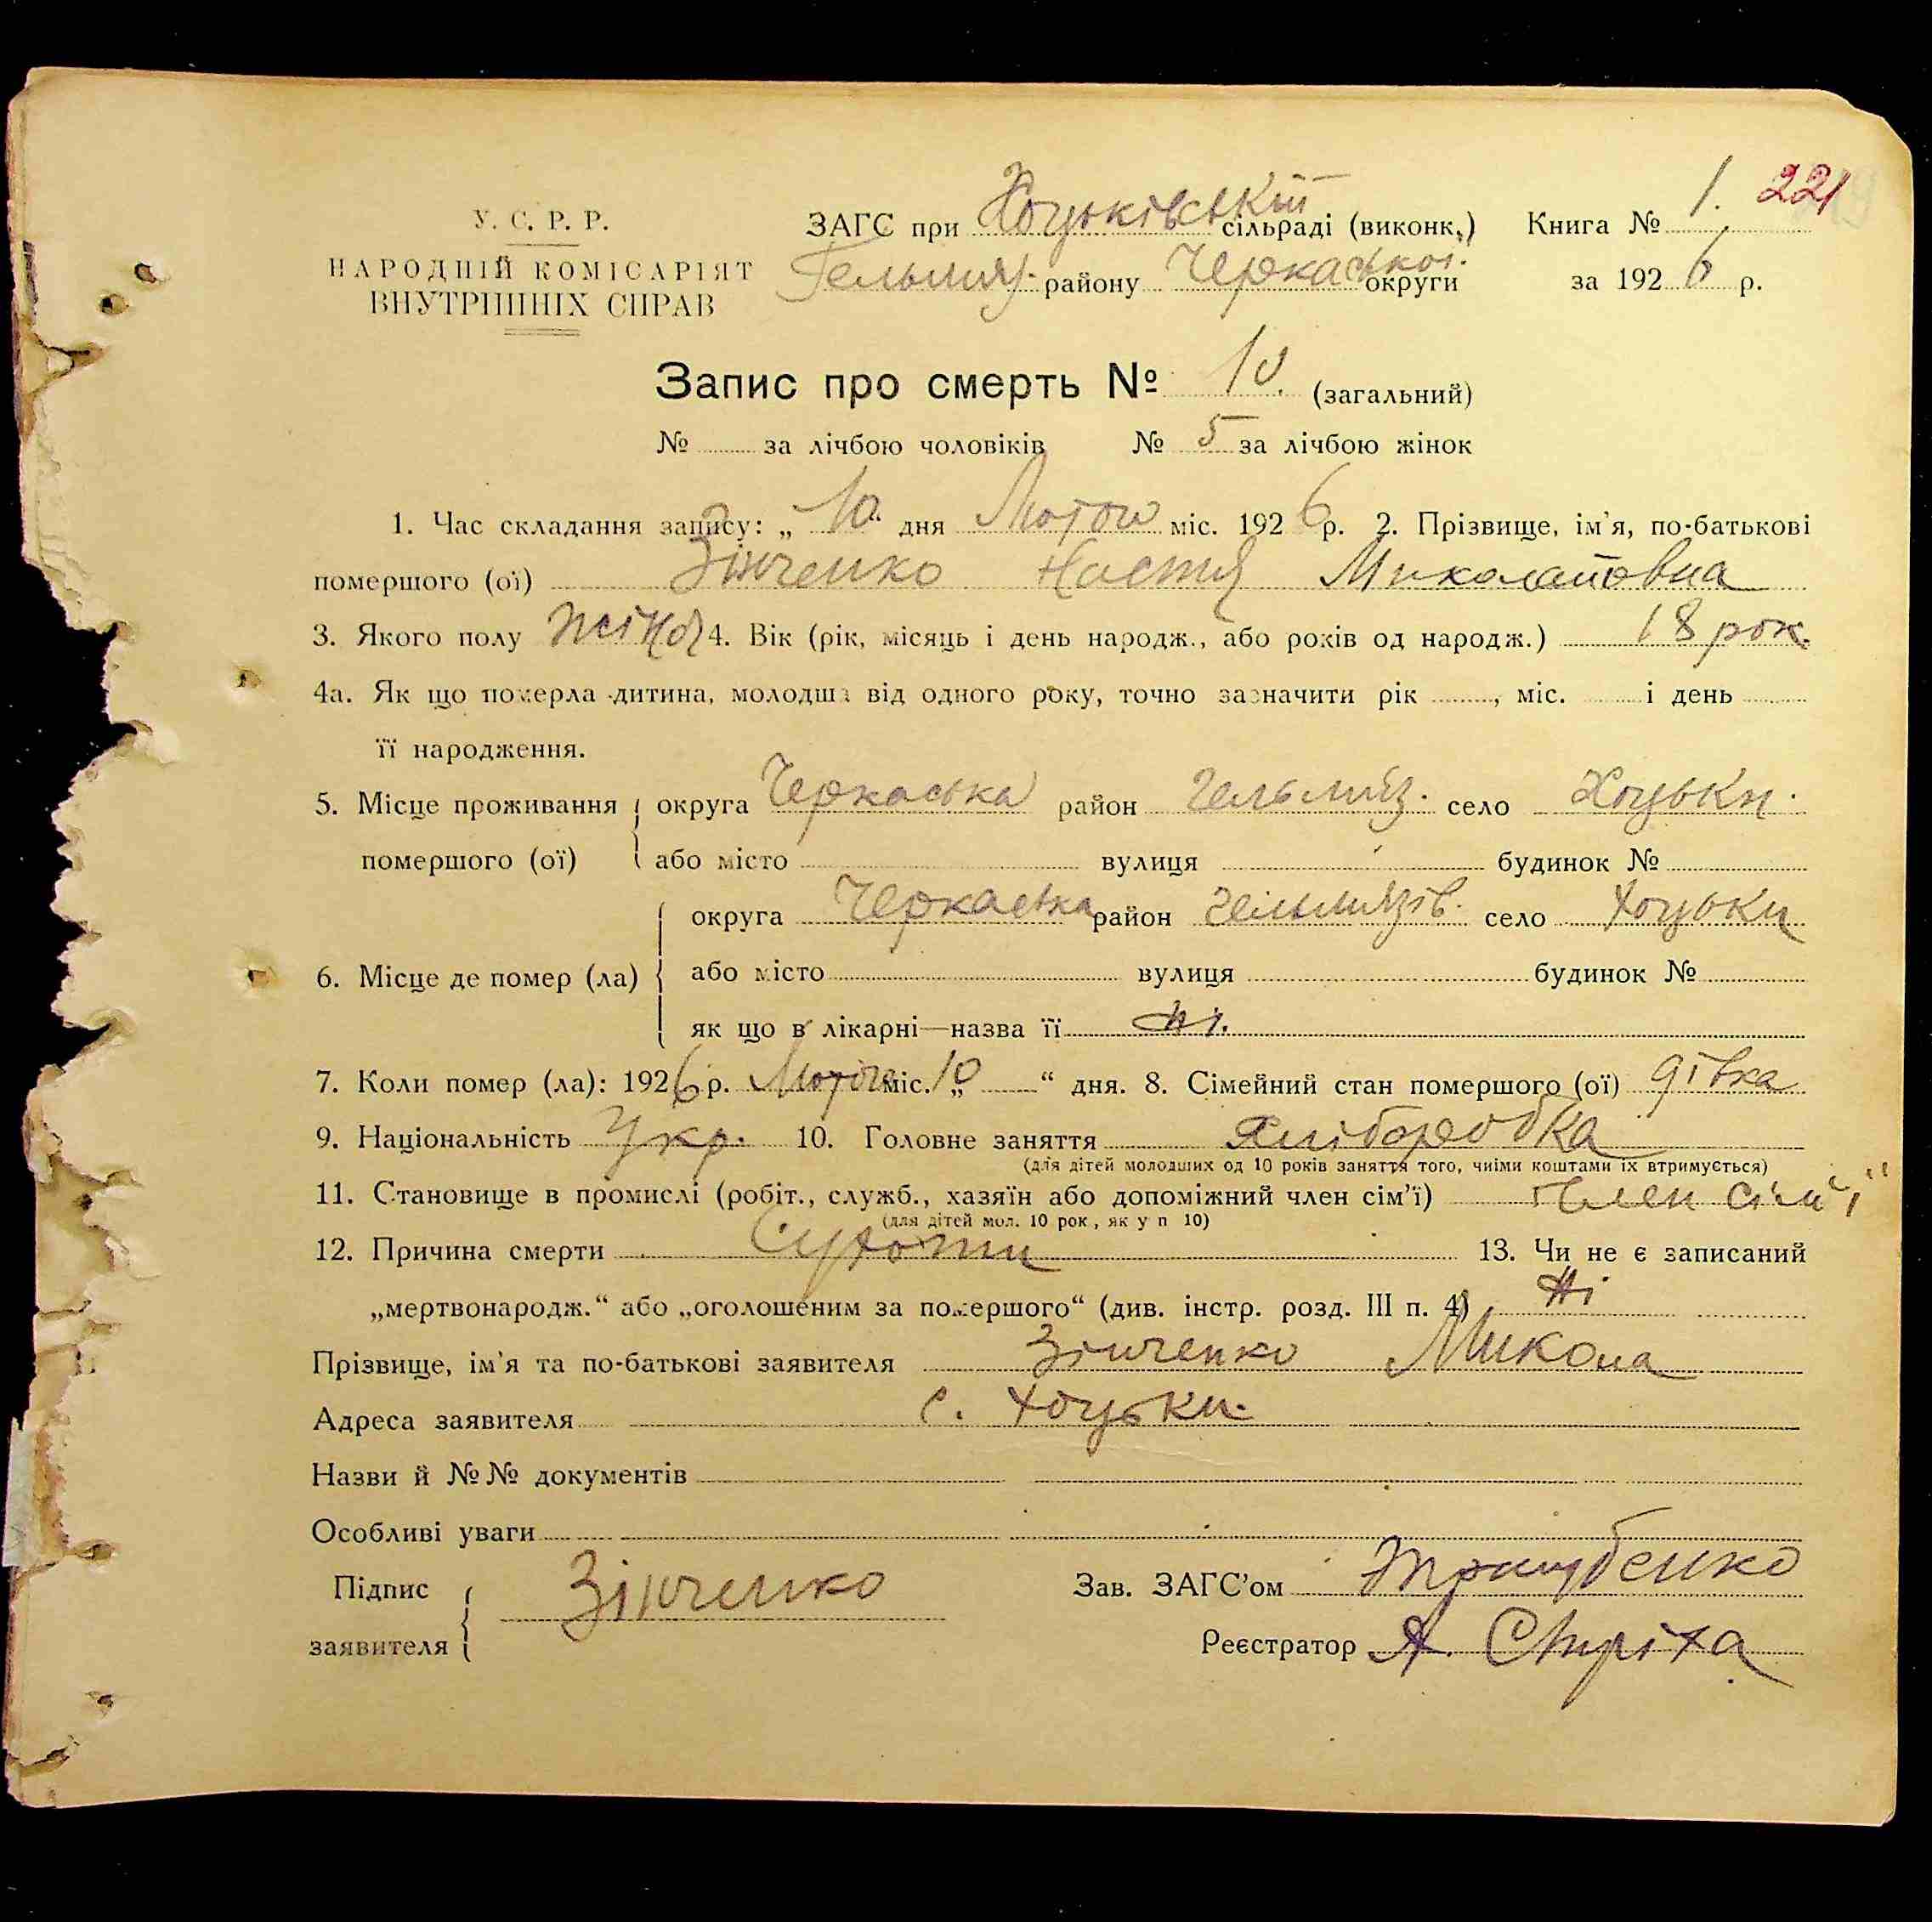 У. С. Р. Р.
НАРОДНІЙ КОМІСАРІЯТ
ВНУТРІШНІХ СПРАВ
ЗАГС при Хоцьківській сільраді (виконк.) Книга № 1. 221
Гельмяз. району Черкаської округи за 1926 р.
Запис про смерть № 10. (загальний)
№ за лічбою чоловіків № 5 за лічбою жінок
1. Час складання запису: „ 10 “ дня Лютого міс. 1926 р. 2. Прізвище, ім'я, по-батькові
помершого (ої) Зінченко Настя Миколаївна
3. Якого полу жіноч 4. Вік (рік, місяць і день народж., або років од народж.) 18 рок.
4а. Як що померла дитина, молодша від одного року, точно зазначити рік , міс. і день
її народження.
5. Місце проживання округа Черкаська район Гельмяз. село Хоцьки.
помершого (ої) або місто вулиця будинок №
округа Черкаська район Гельмязів. село Хоцьки
6. Місце де помер (ла) або місто вулиця будинок №
як що в лікарні—назва її ні.
7. Коли помер (ла): 1926 р. Лютого міс. „10 “ дня. 8. Сімейний стан помершого (ої) дівка
9. Національність Укр. 10. Головне заняття Хліборобка
(для дітей молодших од 10 років заняття того, чиїми коштами їх втримується)
11. Становище в промислі (робіт., служб., хазяїн або допоміжний член сім'ї) член сім'ї
(для дітей мол. 10 рок., як у п 10)
12. Причина смерти Сухоти 13. Чи не є записаний
„мертвонародж.“ або „оголошеним за помершого“ (див. інстр. розд. III п. 4) Ні
Прізвище, ім'я та по-батькові заявителя Зінченко Микола
Адреса заявителя с. Хоцьки.
Назви й №№ документів
Особливі уваги
Підпис заявителя Зінченко Зав. ЗАГС'ом
Реєстратор А. Стріха